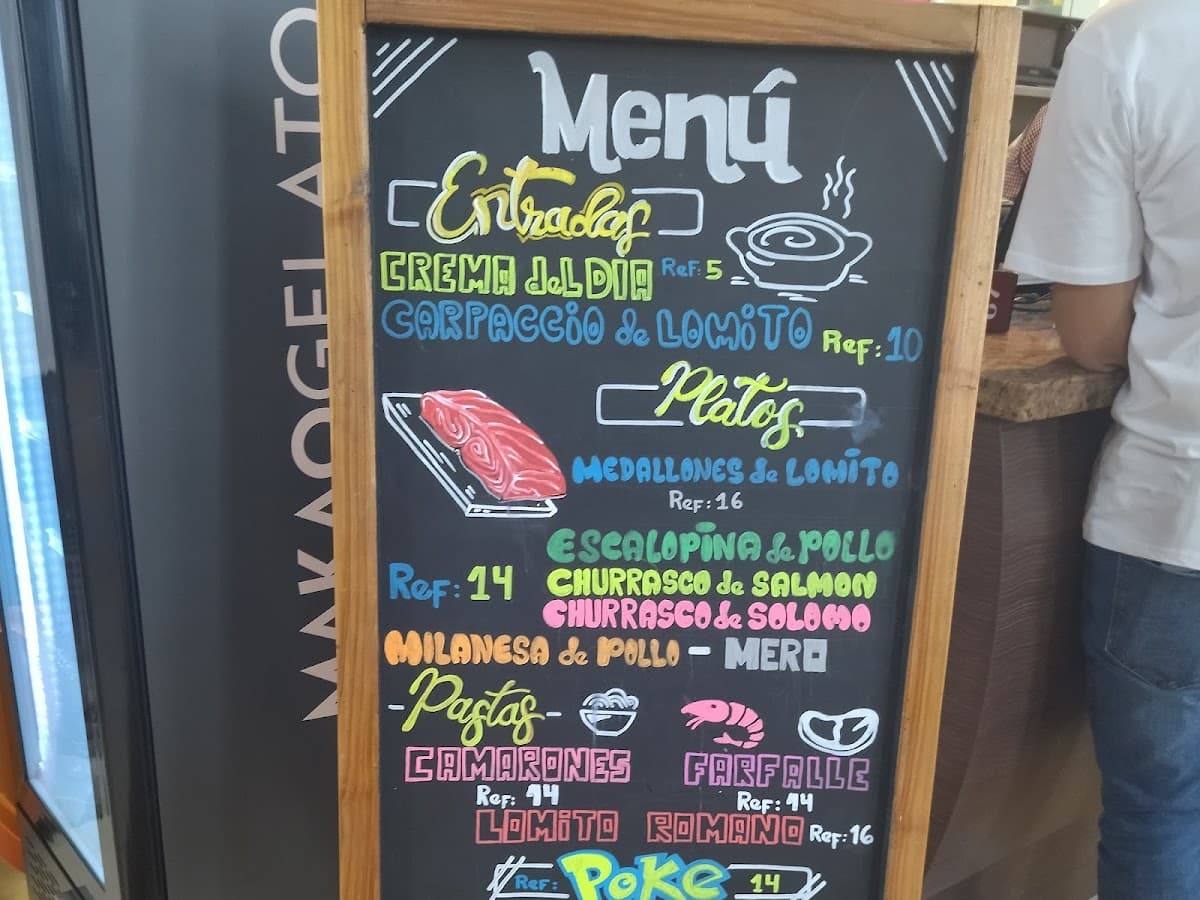 MAKAOGELATO
Menú
Entradas
CREMA deL DIA Ref: 5
CARPACCIO de LOMITO Ref: 10
Platos
MEDALLONES de LOMITO
Ref: 16
ESCALOPINA de POLLO
Ref: 14 CHURRASCO de SALMON
CHURRASCO de SOLOMO
MILANESA de POLLO - MERO
- Pastas -
CAMARONES FARFALLE
Ref: 14 Ref: 14
LOMITO ROMANO Ref: 16
Ref: POKE 14